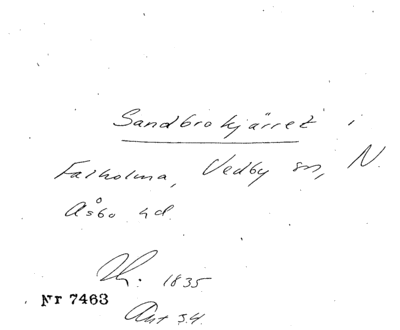 Sandbrokjärret i
Falholma, Vedby sn, N.
Åsbo hd.
1835
Nr 7463